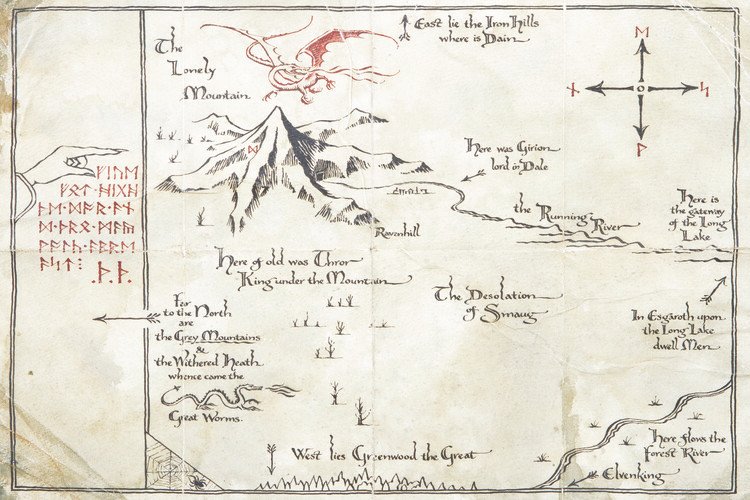 The
Lonely
Mountain
East lie the Iron Hills
where is Dain
ᛖ
ᚾ
ᛋ
ᚹ
ᛞ
Here was Girion
lord in Dale
the Running River
Here is
the gateway
of the Long
Lake
Ravenhill
ᚠᛁᚢᛖ
ᚠᛟᛏ᛫ᚻᛁᚷᚻ
ᚦᛖ᛫ᛞᚩᚱ᛫ᚪᚾ
ᛞ᛫ᚦᚱᛟ᛫ᛗᚪᚣ
ᚹᚪᛚᚳ᛫ᚪᛒᚱᛖ
ᚪᛋᛏ⁝
᛫ᚦ᛫ᚦ᛫
Here of old was Thror
King under the Mountain
The Desolation
of Smaug
Far
to the North
are
the Grey Mountains
&
the Withered Heath
whence came the
Great Worms.
In Esgaroth upon
the Long Lake
dwell Men
Here flows the
Forest River
West lies Greenwood the Great
Elvenking